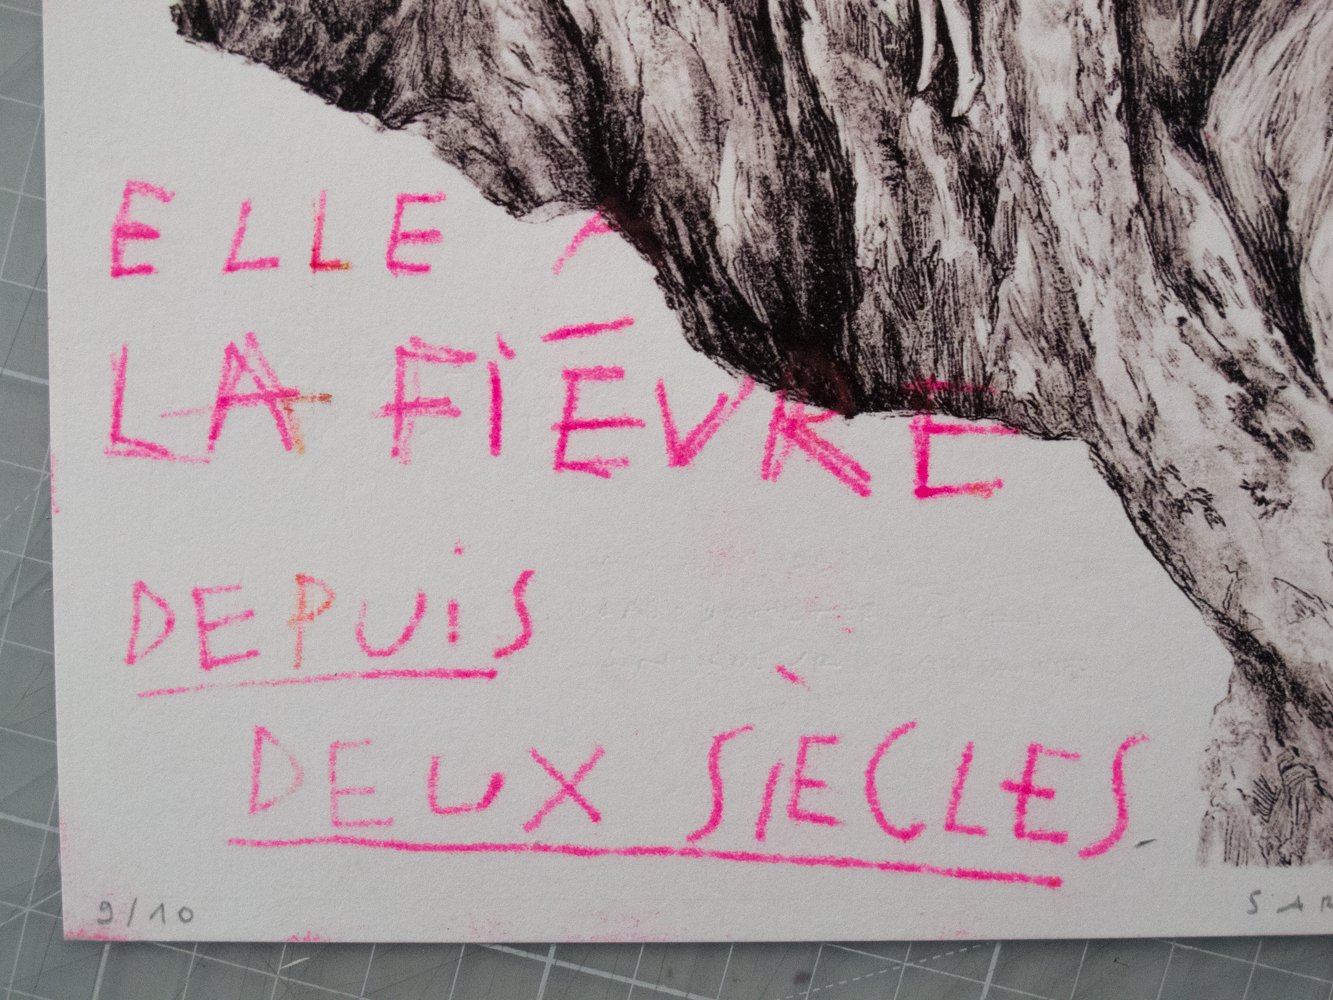 ELLE A
LA FIÉVRE
DEPUIS
DEUX SIÈCLES
9/10
SAR